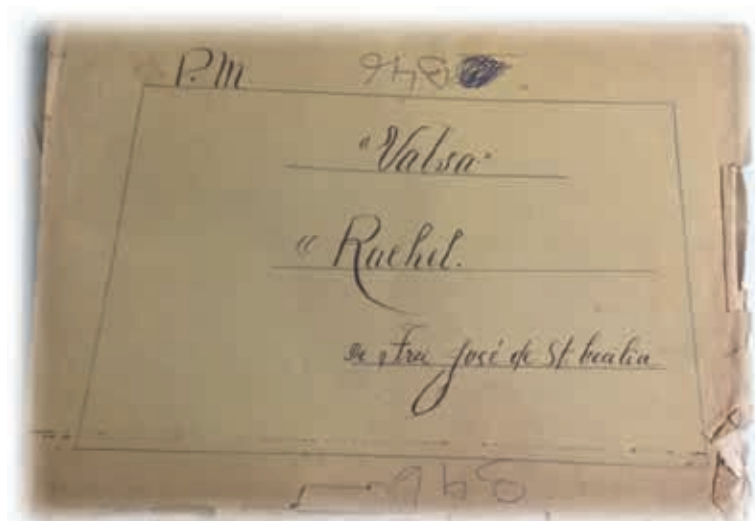 P.M 946
"Valsa"
"Rachel.
de Frei José de Stª
946